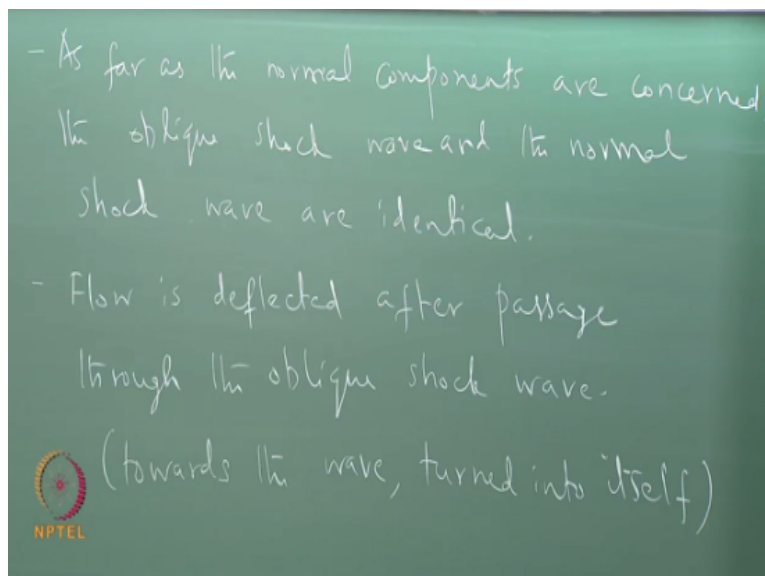 - As far as the normal components are concerned
the oblique shock wave and the normal
shock wave are identical.
- Flow is deflected after passage
through the oblique shock wave.
(towards the wave, turned into itself)
NPTEL